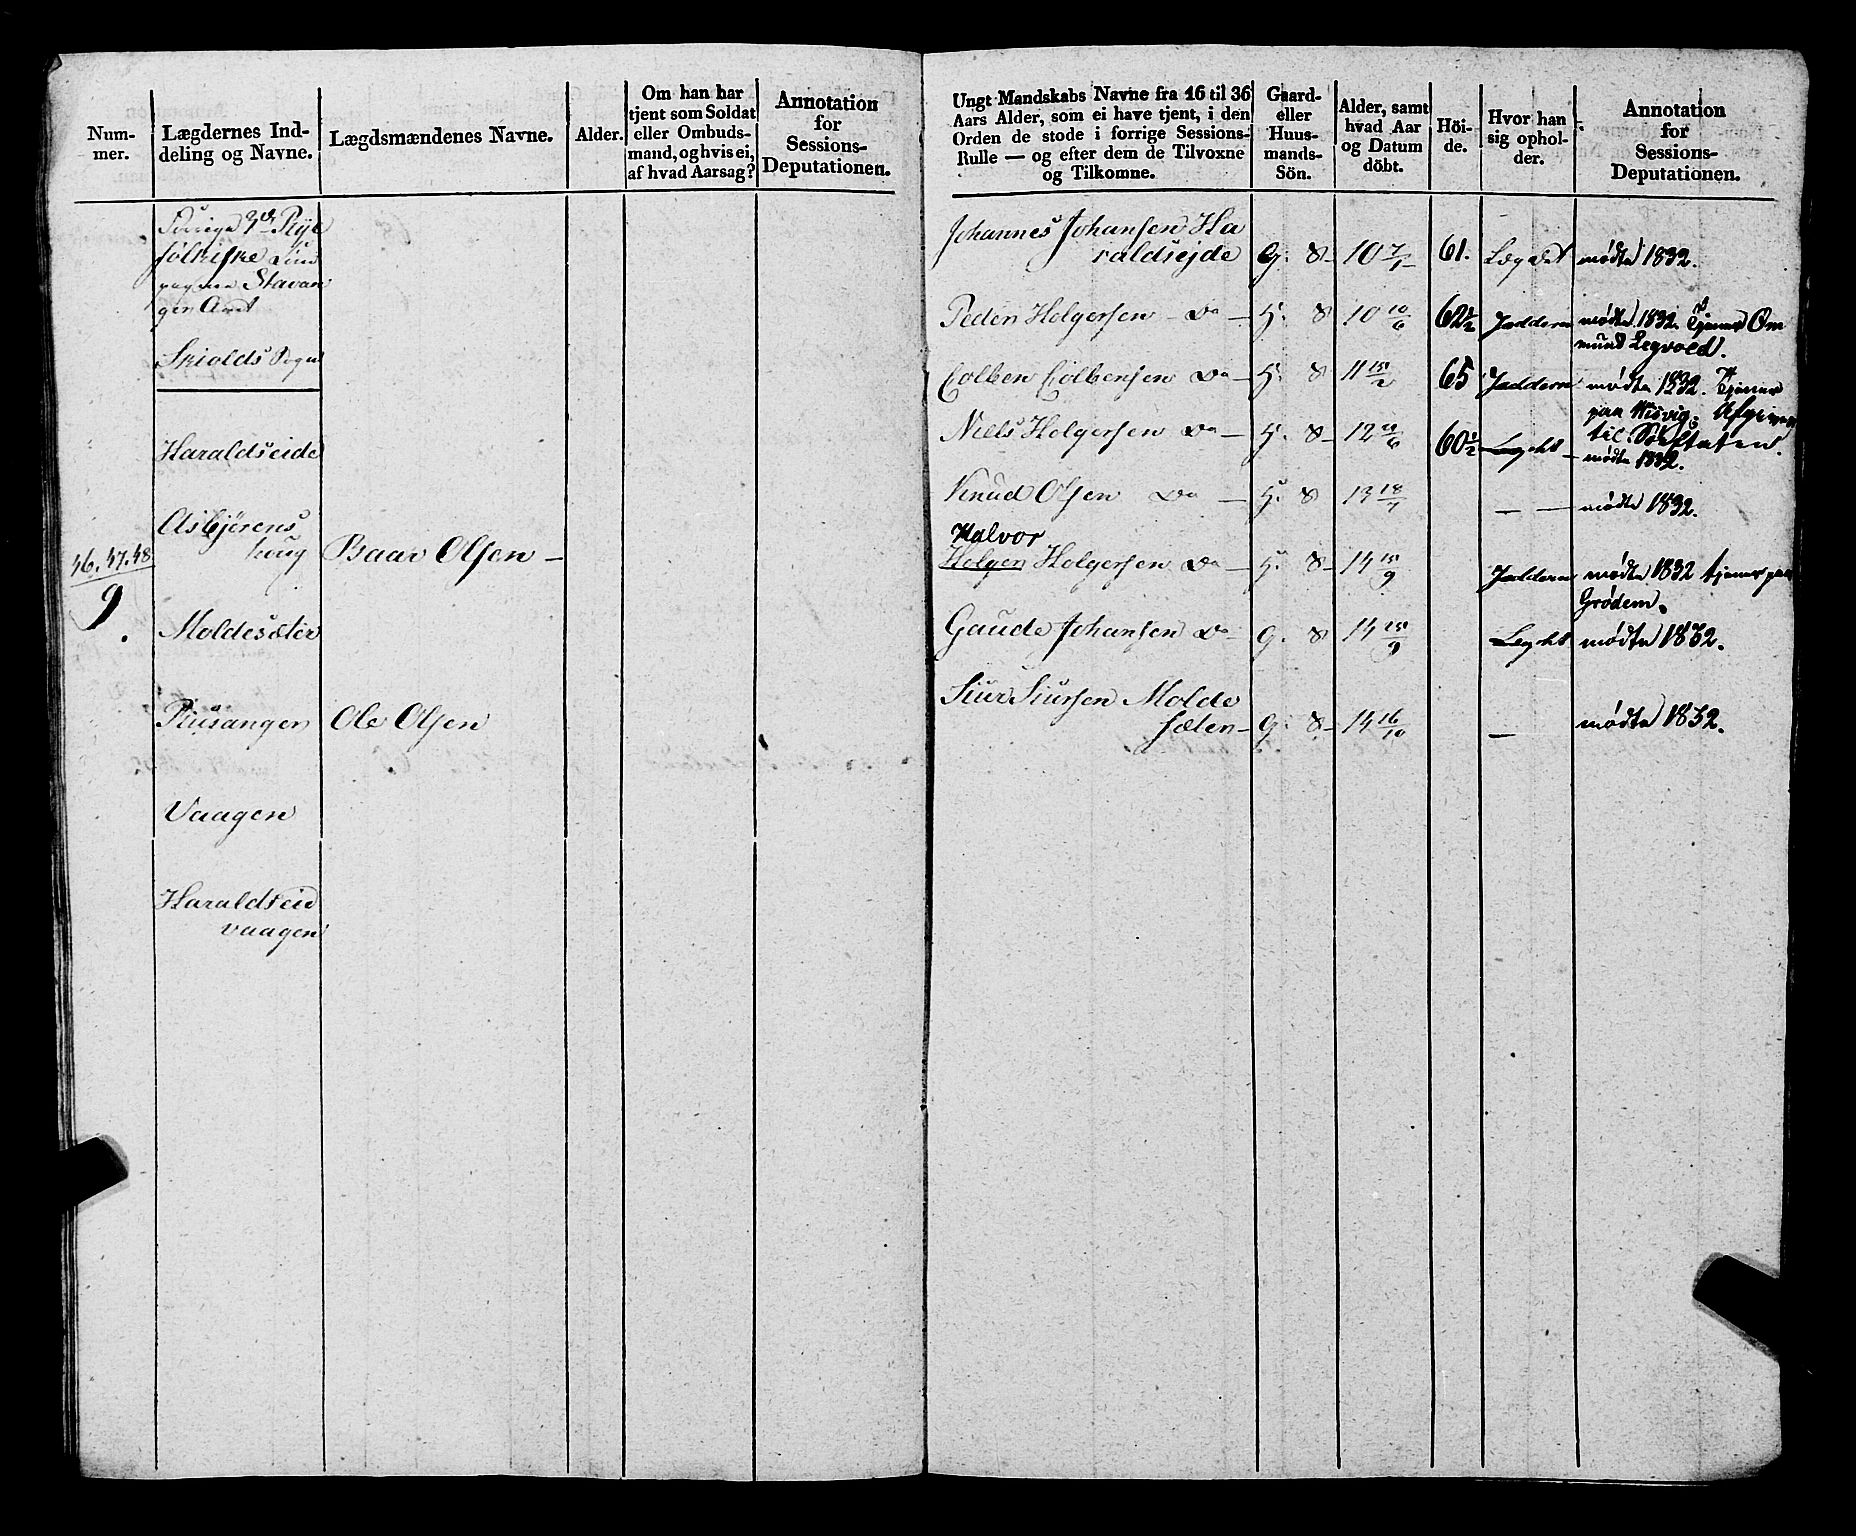 Num-
mer.
Lægdernes Ind-
deling og Navne.
Lægdsmændenes Navne.
Alder.
Om han har
tjent som Soldat
eller Ombuds-
mand, og hvis ei,
af hvad Aarsag?
Annotation
for
Sessions-
Deputationen.
3de Rÿe
fölkiske
Stavan
ger Amt
Skiolds Sogn
Haraldseide
Asbjörens
houg
46. 47. 48
9.
Baar Olsen –
Moldesæter
Ole Olsen
Vaagen
Haraldseid
vaagen
Ungt Mandskabs Navne fra 16 til 36
Aars Alder, som ei have tjent, i den
Orden de stode i forrige Sessions-
Rulle — og efter dem de Tilvoxne
og Tilkomne.
Gaard-
eller
Huus-
mands-
Sön.
Alder, samt
hvad Aar
og Datum
döbt.
Höi-
de.
Hvor han
sig ophol-
der.
Annotation
for
Sessions-
Deputationen.
Johannes Johansen Ha
raldsejde G. S – 10 7/1 61. Lægdet mødte 1832.
Peder Helgersen – Do – H. S 10 10/6 62½ Jadderen mødte 1832. Tjener Om
mund
Colben Colbensen Do – H. S 11 15/2 65 Jadderen mødte 1832. Tjener
paa Afgiven
til
Niels Helgersen Do – H. S – 12 60½ Legdet – mødte 1832.
Knud Olsen Do – H. S 13 18/7 – – mødte 1832.
Halvor
Helger Helgersen Do – H. S – 14 15/9 Jadderen mødte 1832 tjener paa
Grødem.
Gaude Johansen Do – G. S 14 15/9 Legdet mødte 1832.
Siur Siursen Molde
sæter – G. S – 14 16/10 – mødte 1832.